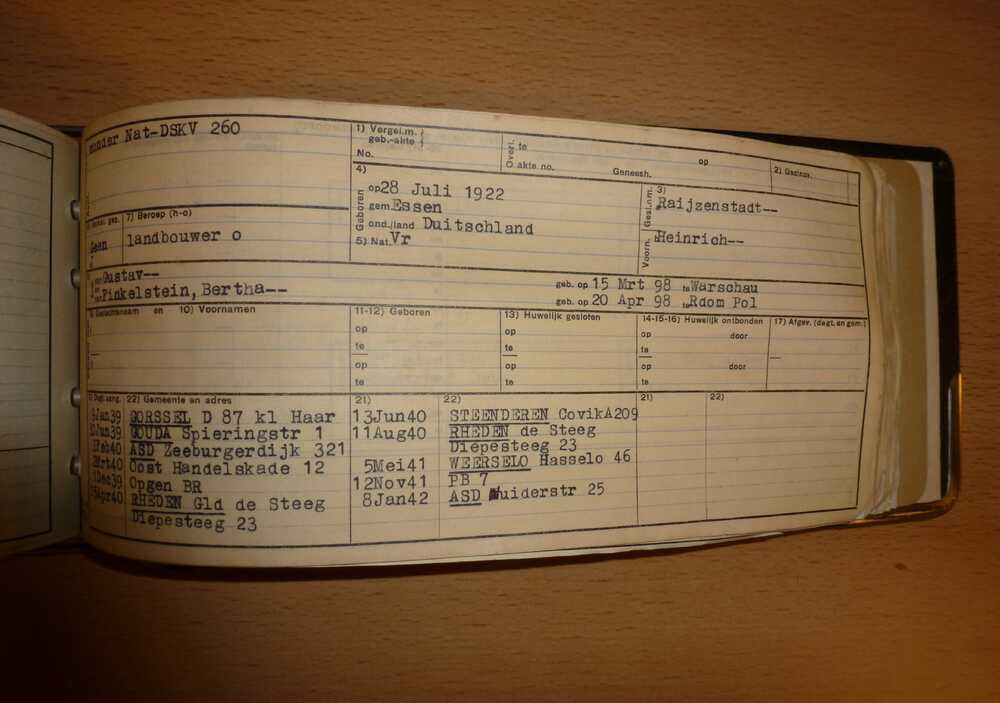 zonder Nat-DSKV 260
1) Vergel.m. geb.-akte
No.
Overl. te op
akte no. Geneesh.
2) Gezinsa.
4)
Geboren op 28 Juli 1922
gem. Essen
ond./land Duitschland
5) Nat. Vr
Gesl.nm. 3)
Raijzenstadt--
Voorn. Heinrich--
Geen
7) Beroep (h-o)
landbouwer o
van Gustav-- geb. op 15 Mrt 98 te Warschau
en van Finkelstein, Bertha-- geb. op 20 Apr 98 te Rdom Pol
9) Geslachtsnaam en 10) Voornamen
11-12) Geboren
op
te
op
te
13) Huwelijk gesloten
op
te
op
te
14-15-16) Huwelijk ontbonden
op door
te
op door
te
17) Afgev. (dagt. en gem.)
21) Dagt. aang. 22) Gemeente en adres
9Jan39 GORSSEL D 87 kl Haar
Jun39 GOUDA Spieringstr 1
Feb40 ASD Zeeburgerdijk 321
Mrt40 Oost Handelskade 12
Dec39 Opgen BR
Apr40 RHEDEN Gld de Steeg
Diepesteeg 23
21) 22)
13Jun40 STEENDEREN CovikA209
11Aug40 RHEDEN de Steeg
Diepesteeg 23
5Mei41 WEERSELO Hasselo 46
12Nov41 PB 7
8Jan42 ASD Muiderstr 25
21) 22)